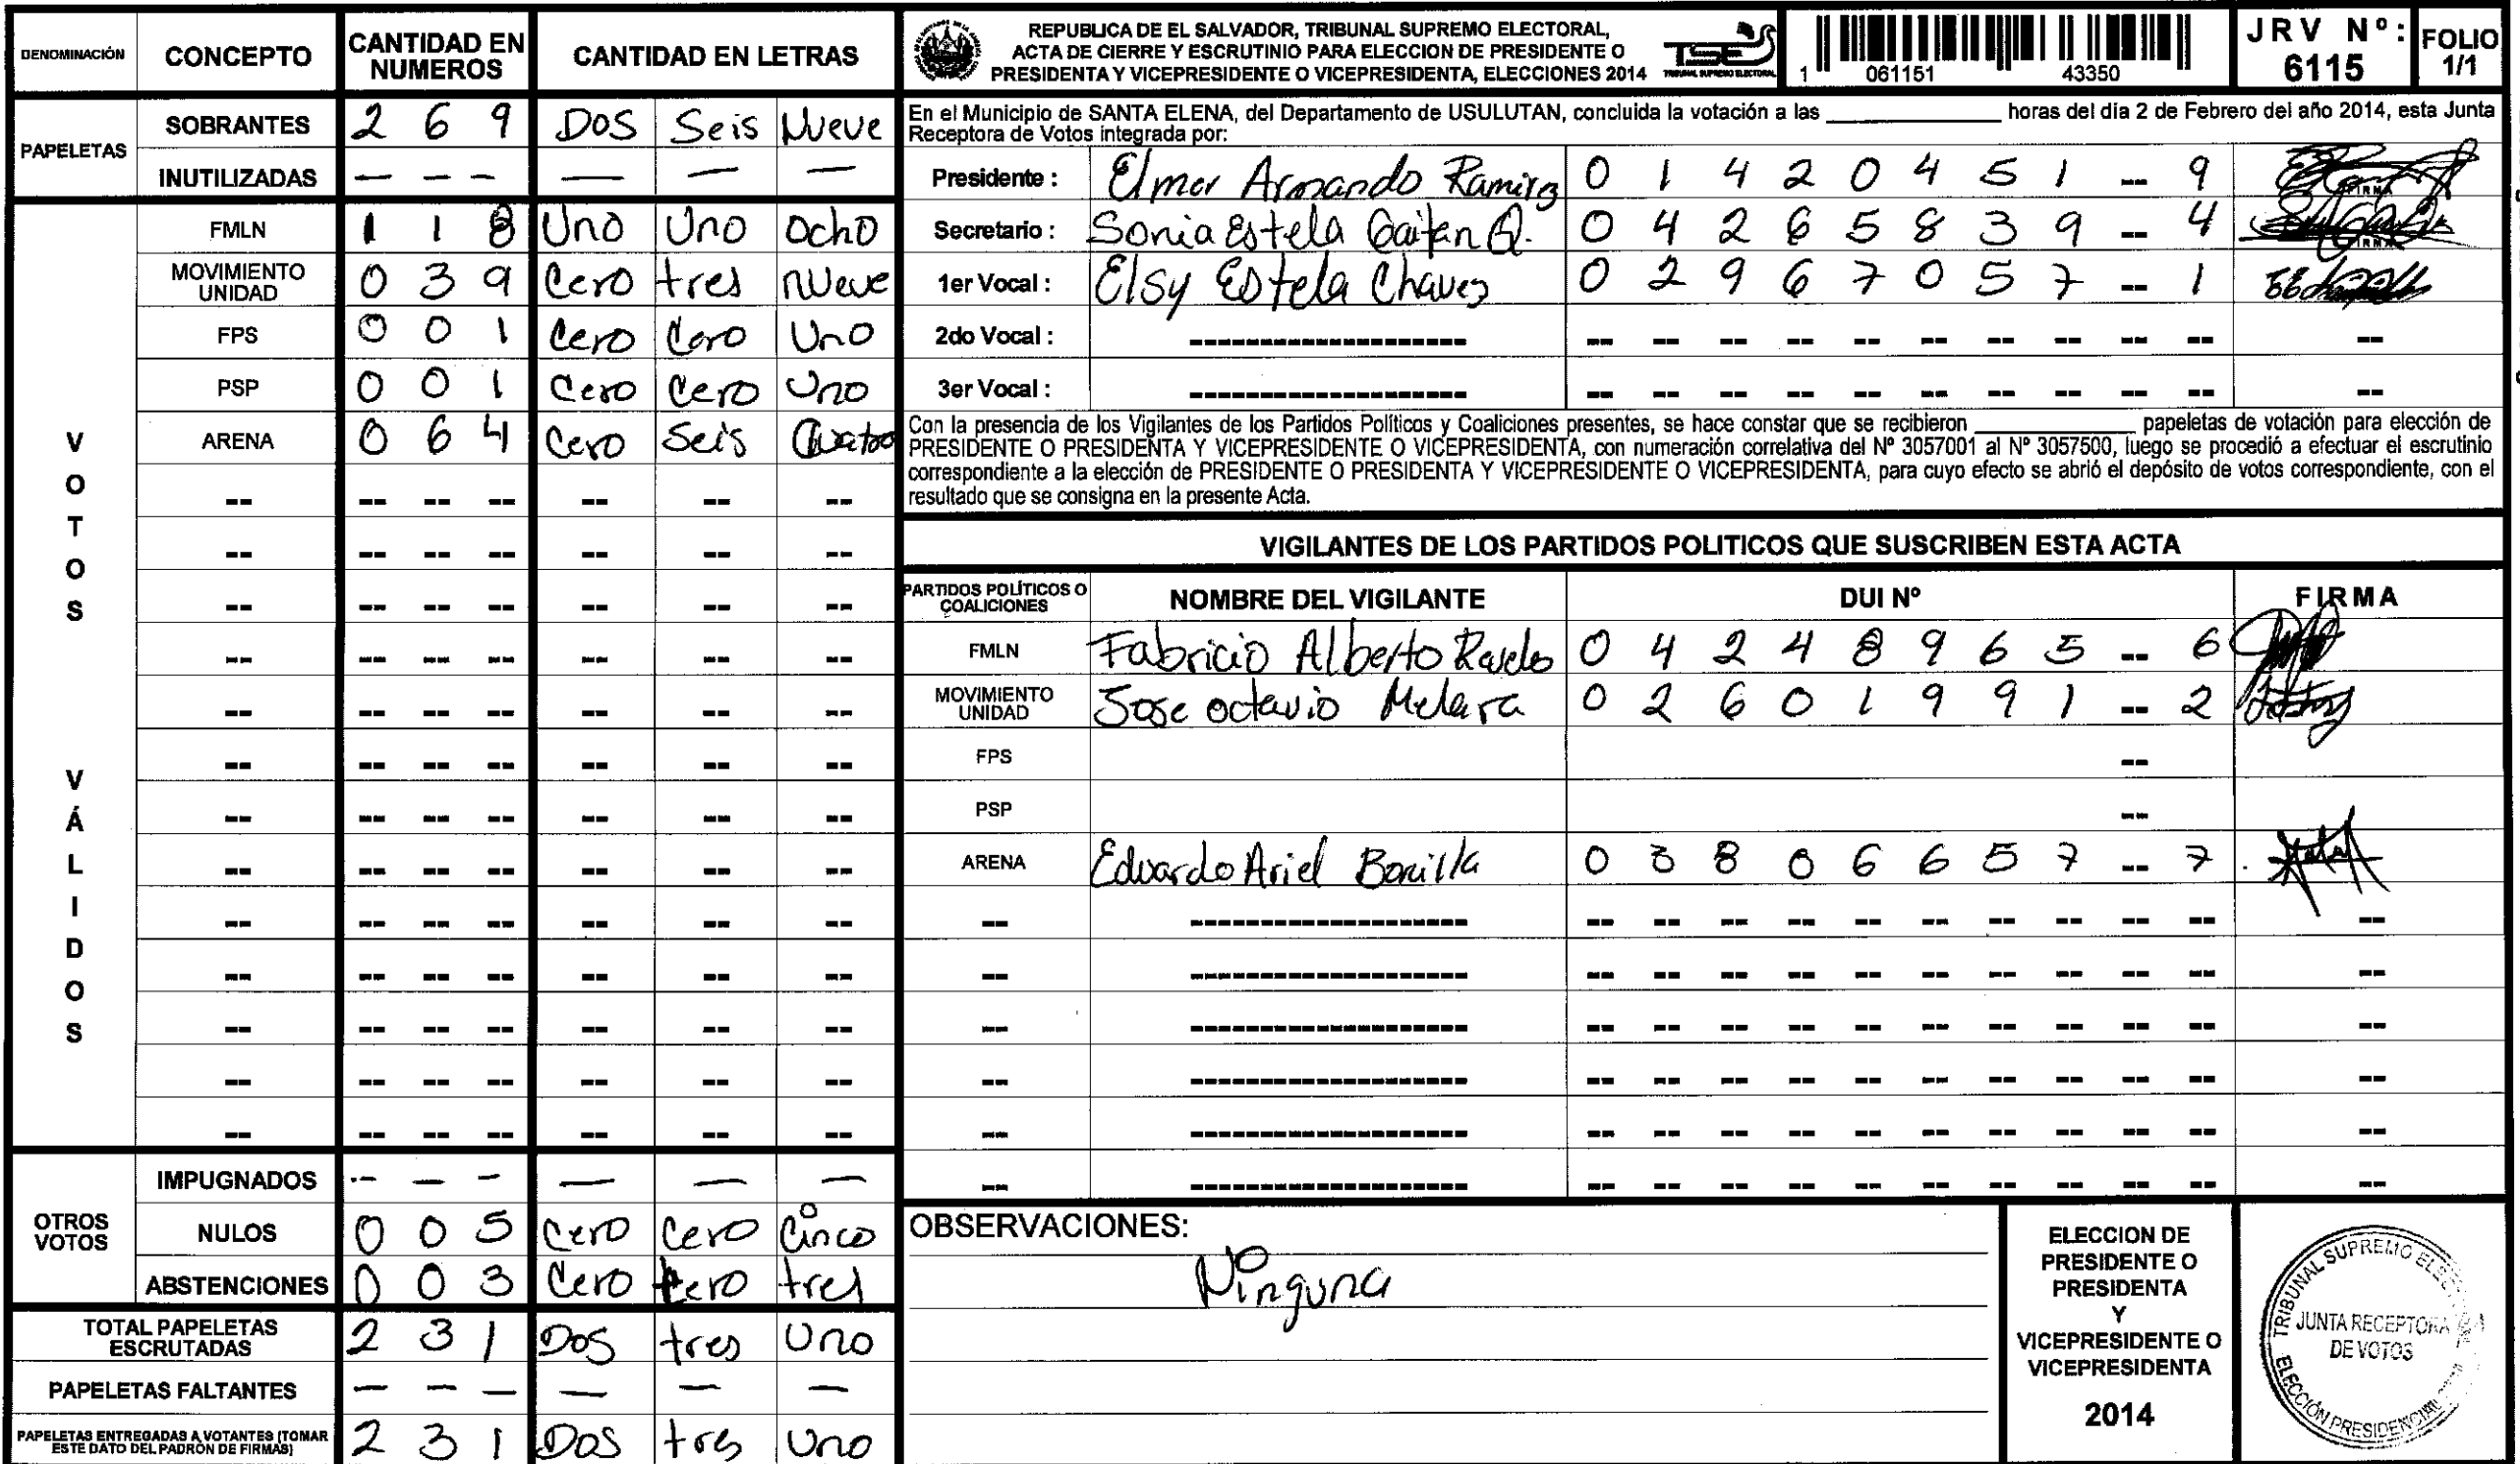 DENOMINACIÓN CONCEPTO CANTIDAD EN NUMEROS CANTIDAD EN LETRAS
PAPELETAS
SOBRANTES 2 6 9 Dos Seis Nueve
INUTILIZADAS — — — — — —
VOTOS VÁLIDOS
FMLN 1 1 8 Uno Uno Ocho
MOVIMIENTO UNIDAD 0 3 9 Cero tres nueve
FPS 0 0 1 Cero Cero Uno
PSP 0 0 1 Cero Cero Uno
ARENA 0 6 4 Cero Seis Cuatro
-- -- -- -- -- -- --
-- -- -- -- -- -- --
-- -- -- -- -- -- --
-- -- -- -- -- -- --
-- -- -- -- -- -- --
-- -- -- -- -- -- --
-- -- -- -- -- -- --
-- -- -- -- -- -- --
-- -- -- -- -- -- --
-- -- -- -- -- -- --
-- -- -- -- -- -- --
-- -- -- -- -- -- --
-- -- -- -- -- -- --
OTROS VOTOS
IMPUGNADOS — — — — — —
NULOS 0 0 5 Cero Cero Cinco
ABSTENCIONES 0 0 3 Cero Cero tres
TOTAL PAPELETAS ESCRUTADAS 2 3 1 Dos tres Uno
PAPELETAS FALTANTES — — — — — —
PAPELETAS ENTREGADAS A VOTANTES (TOMAR ESTE DATO DEL PADRÓN DE FIRMAS) 2 3 1 Dos tres Uno
REPUBLICA DE EL SALVADOR, TRIBUNAL SUPREMO ELECTORAL,
ACTA DE CIERRE Y ESCRUTINIO PARA ELECCION DE PRESIDENTE O
PRESIDENTA Y VICEPRESIDENTE O VICEPRESIDENTA, ELECCIONES 2014
TSE
TRIBUNAL SUPREMO ELECTORAL
1 061151 43350
JRV Nº: 6115
FOLIO 1/1
En el Municipio de SANTA ELENA, del Departamento de USULUTAN, concluida la votación a las ____________ horas del día 2 de Febrero del año 2014, esta Junta
Receptora de Votos integrada por:
Presidente : Elmer Armando Ramirez 0 1 4 2 0 4 5 1 -- 9 FIRMA
Secretario : Sonia Estela Gaitan Q. 0 4 2 6 5 8 3 9 -- 4 FIRMA
1er Vocal : Elsy Estela Chavez 0 2 9 6 7 0 5 7 -- 1
2do Vocal : ------------------ -- -- -- -- -- -- -- -- -- -- --
3er Vocal : ------------------ -- -- -- -- -- -- -- -- -- -- --
Con la presencia de los Vigilantes de los Partidos Políticos y Coaliciones presentes, se hace constar que se recibieron ____________ papeletas de votación para elección de
PRESIDENTE O PRESIDENTA Y VICEPRESIDENTE O VICEPRESIDENTA, con numeración correlativa del Nº 3057001 al Nº 3057500, luego se procedió a efectuar el escrutinio
correspondiente a la elección de PRESIDENTE O PRESIDENTA Y VICEPRESIDENTE O VICEPRESIDENTA, para cuyo efecto se abrió el depósito de votos correspondiente, con el
resultado que se consigna en la presente Acta.
VIGILANTES DE LOS PARTIDOS POLITICOS QUE SUSCRIBEN ESTA ACTA
PARTIDOS POLÍTICOS O COALICIONES NOMBRE DEL VIGILANTE DUI Nº FIRMA
FMLN Fabricio Alberto 0 4 2 4 8 9 6 5 -- 6
MOVIMIENTO UNIDAD Jose octavio Melara 0 2 6 0 1 9 9 1 -- 2
FPS --
PSP --
ARENA Eduardo Ariel Bonilla 0 3 8 0 6 6 5 7 -- 7
-- ------------------ -- -- -- -- -- -- -- -- -- -- --
-- ------------------ -- -- -- -- -- -- -- -- -- -- --
-- ------------------ -- -- -- -- -- -- -- -- -- -- --
-- ------------------ -- -- -- -- -- -- -- -- -- -- --
-- ------------------ -- -- -- -- -- -- -- -- -- -- --
-- ------------------ -- -- -- -- -- -- -- -- -- -- --
OBSERVACIONES:
Ninguna
ELECCION DE
PRESIDENTE O
PRESIDENTA
Y
VICEPRESIDENTE O
VICEPRESIDENTA
2014
TRIBUNAL SUPREMO
JUNTA RECEPTORA
DE VOTOS
ELECCIÓN PRESIDENCIAL